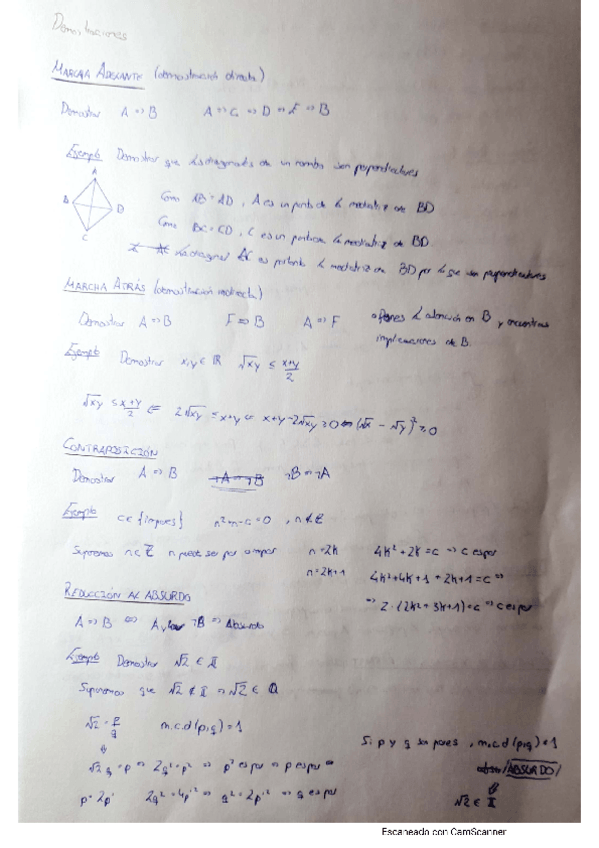 Demostraciones
MARCHA ADELANTE (demostración directa)
Demostrar A ⇒ B A ⇒ C ⇒ D ⇒ E ⇒ B
Ejemplo Demostrar que las diagonales de un rombo son perpendiculares
A
B D
C
Como AB = AD, A es un punto de la mediatriz de BD
Como BC = CD, C es un punto de la mediatriz de BD.
La diagonal AC es por tanto la mediatriz de BD por lo que son perpendiculares
MARCHA ATRÁS (demostración indirecta)
Demostrar A ⇒ B F ⇒ B A ⇒ F la atención en B y encuentras
implicaciones de B.
Ejemplo Demostrar x,y ∈ ℝ √xy ≤ x+y/2
√xy ≤ x+y/2 ⇐ 2√xy ≤ x+y ⇐ x+y-2√xy ≥ 0 ⇔ (√x - √y)² ≥ 0
CONTRAPOSICIÓN
Demostrar A ⇒ B ¬B ⇒ ¬A
Ejemplo c ∈ {impares} n²+n-c=0, n ∉ ℤ
Supongamos n ∈ ℤ n puede ser par o impar n=2k 4k²+2k=c ⇒ c es par
n=2k+1 4k²+4k+1+2k+1=c ⇒
⇒ 2·(2k²+3k+1)=c ⇒ c es par
REDUCCIÓN AL ABSURDO
A ⇒ B ⇔ A y ¬B ⇒ Absurdo
Ejemplo Demostrar √2 ∈ 𝕀
Suponemos que √2 ∉ 𝕀 ⇒ √2 ∈ ℚ
√2 = p/q m.c.d(p,q)=1
√2 q = p ⇒ 2q² = p² ⇒ p² es par ⇒ p es par ⇒
p = 2p' 2q² = 4p'² ⇒ q² = 2p'² ⇒ q es par
Si p y q son pares, m.c.d(p,q)≠1
¡ABSURDO!
⇓
√2 ∈ 𝕀
Escaneado con CamScanner